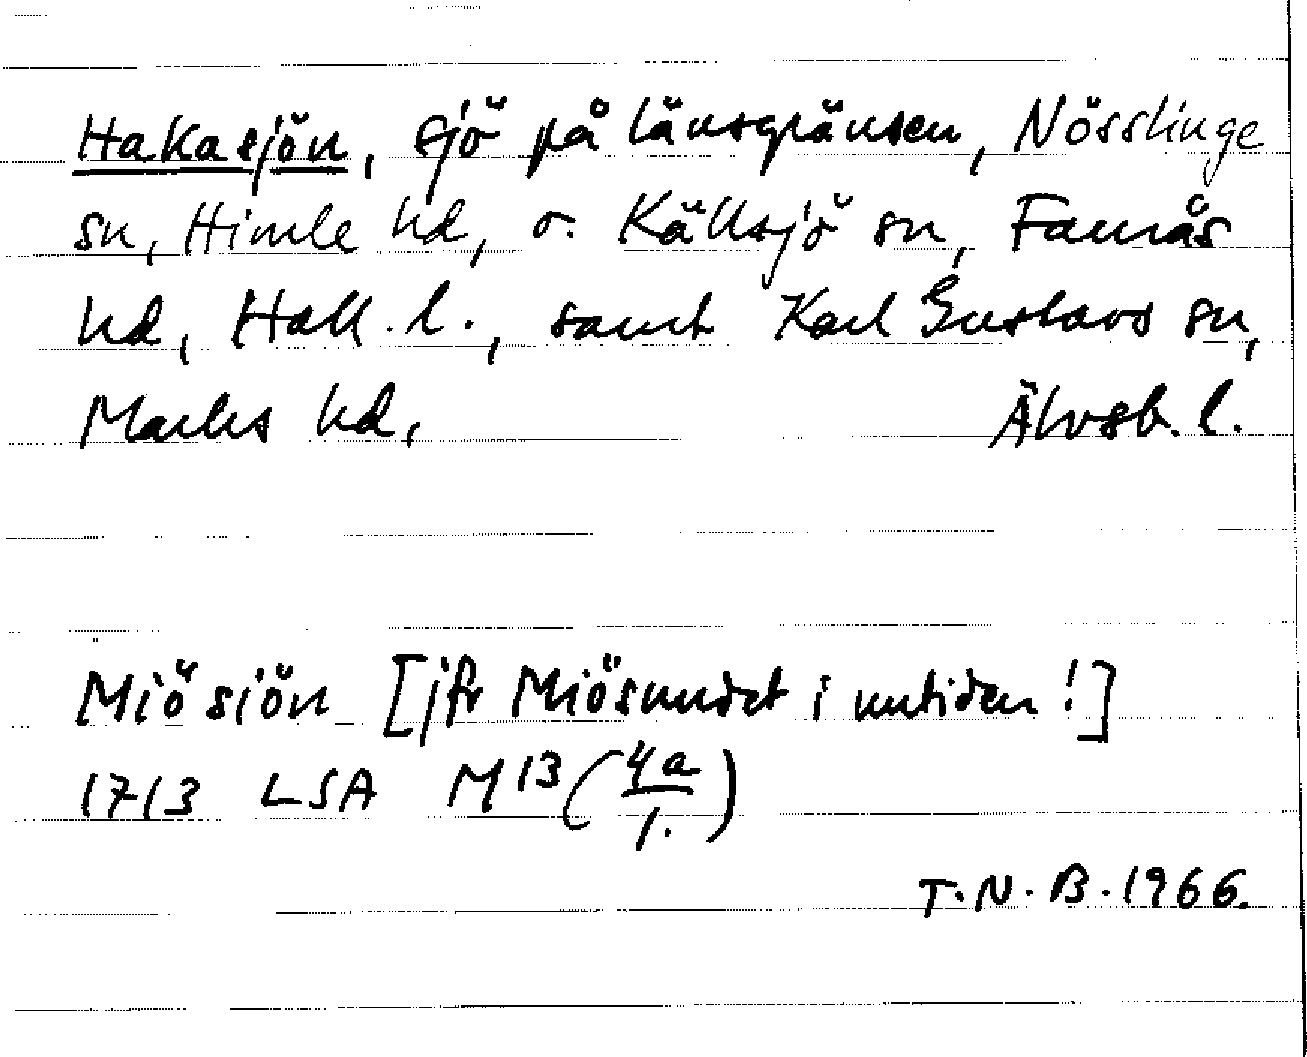 Hakasjön, sjö på länsgränsen, Nösslinge
sn, Himle hd, o. Källsjö sn, Faurås
hd, Hall. l., samt Karl Gustavs sn,
Marks hd, Älvsb. l.
Miösiön [jfr Miösundet i nutiden!]
1713 LSA M13 (4a/1.)
T.N.B. 1966.